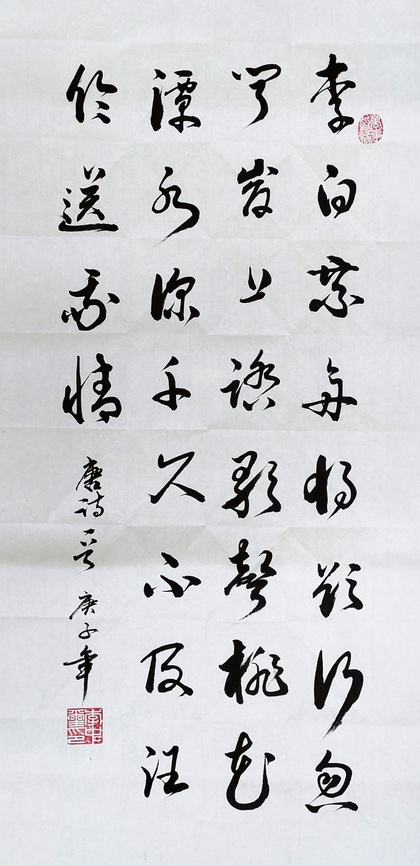 李白乘舟將欲行忽
聞岸上踏歌聲桃花
潭水深千尺不及汪
倫送我情
唐詩一首 庚子年